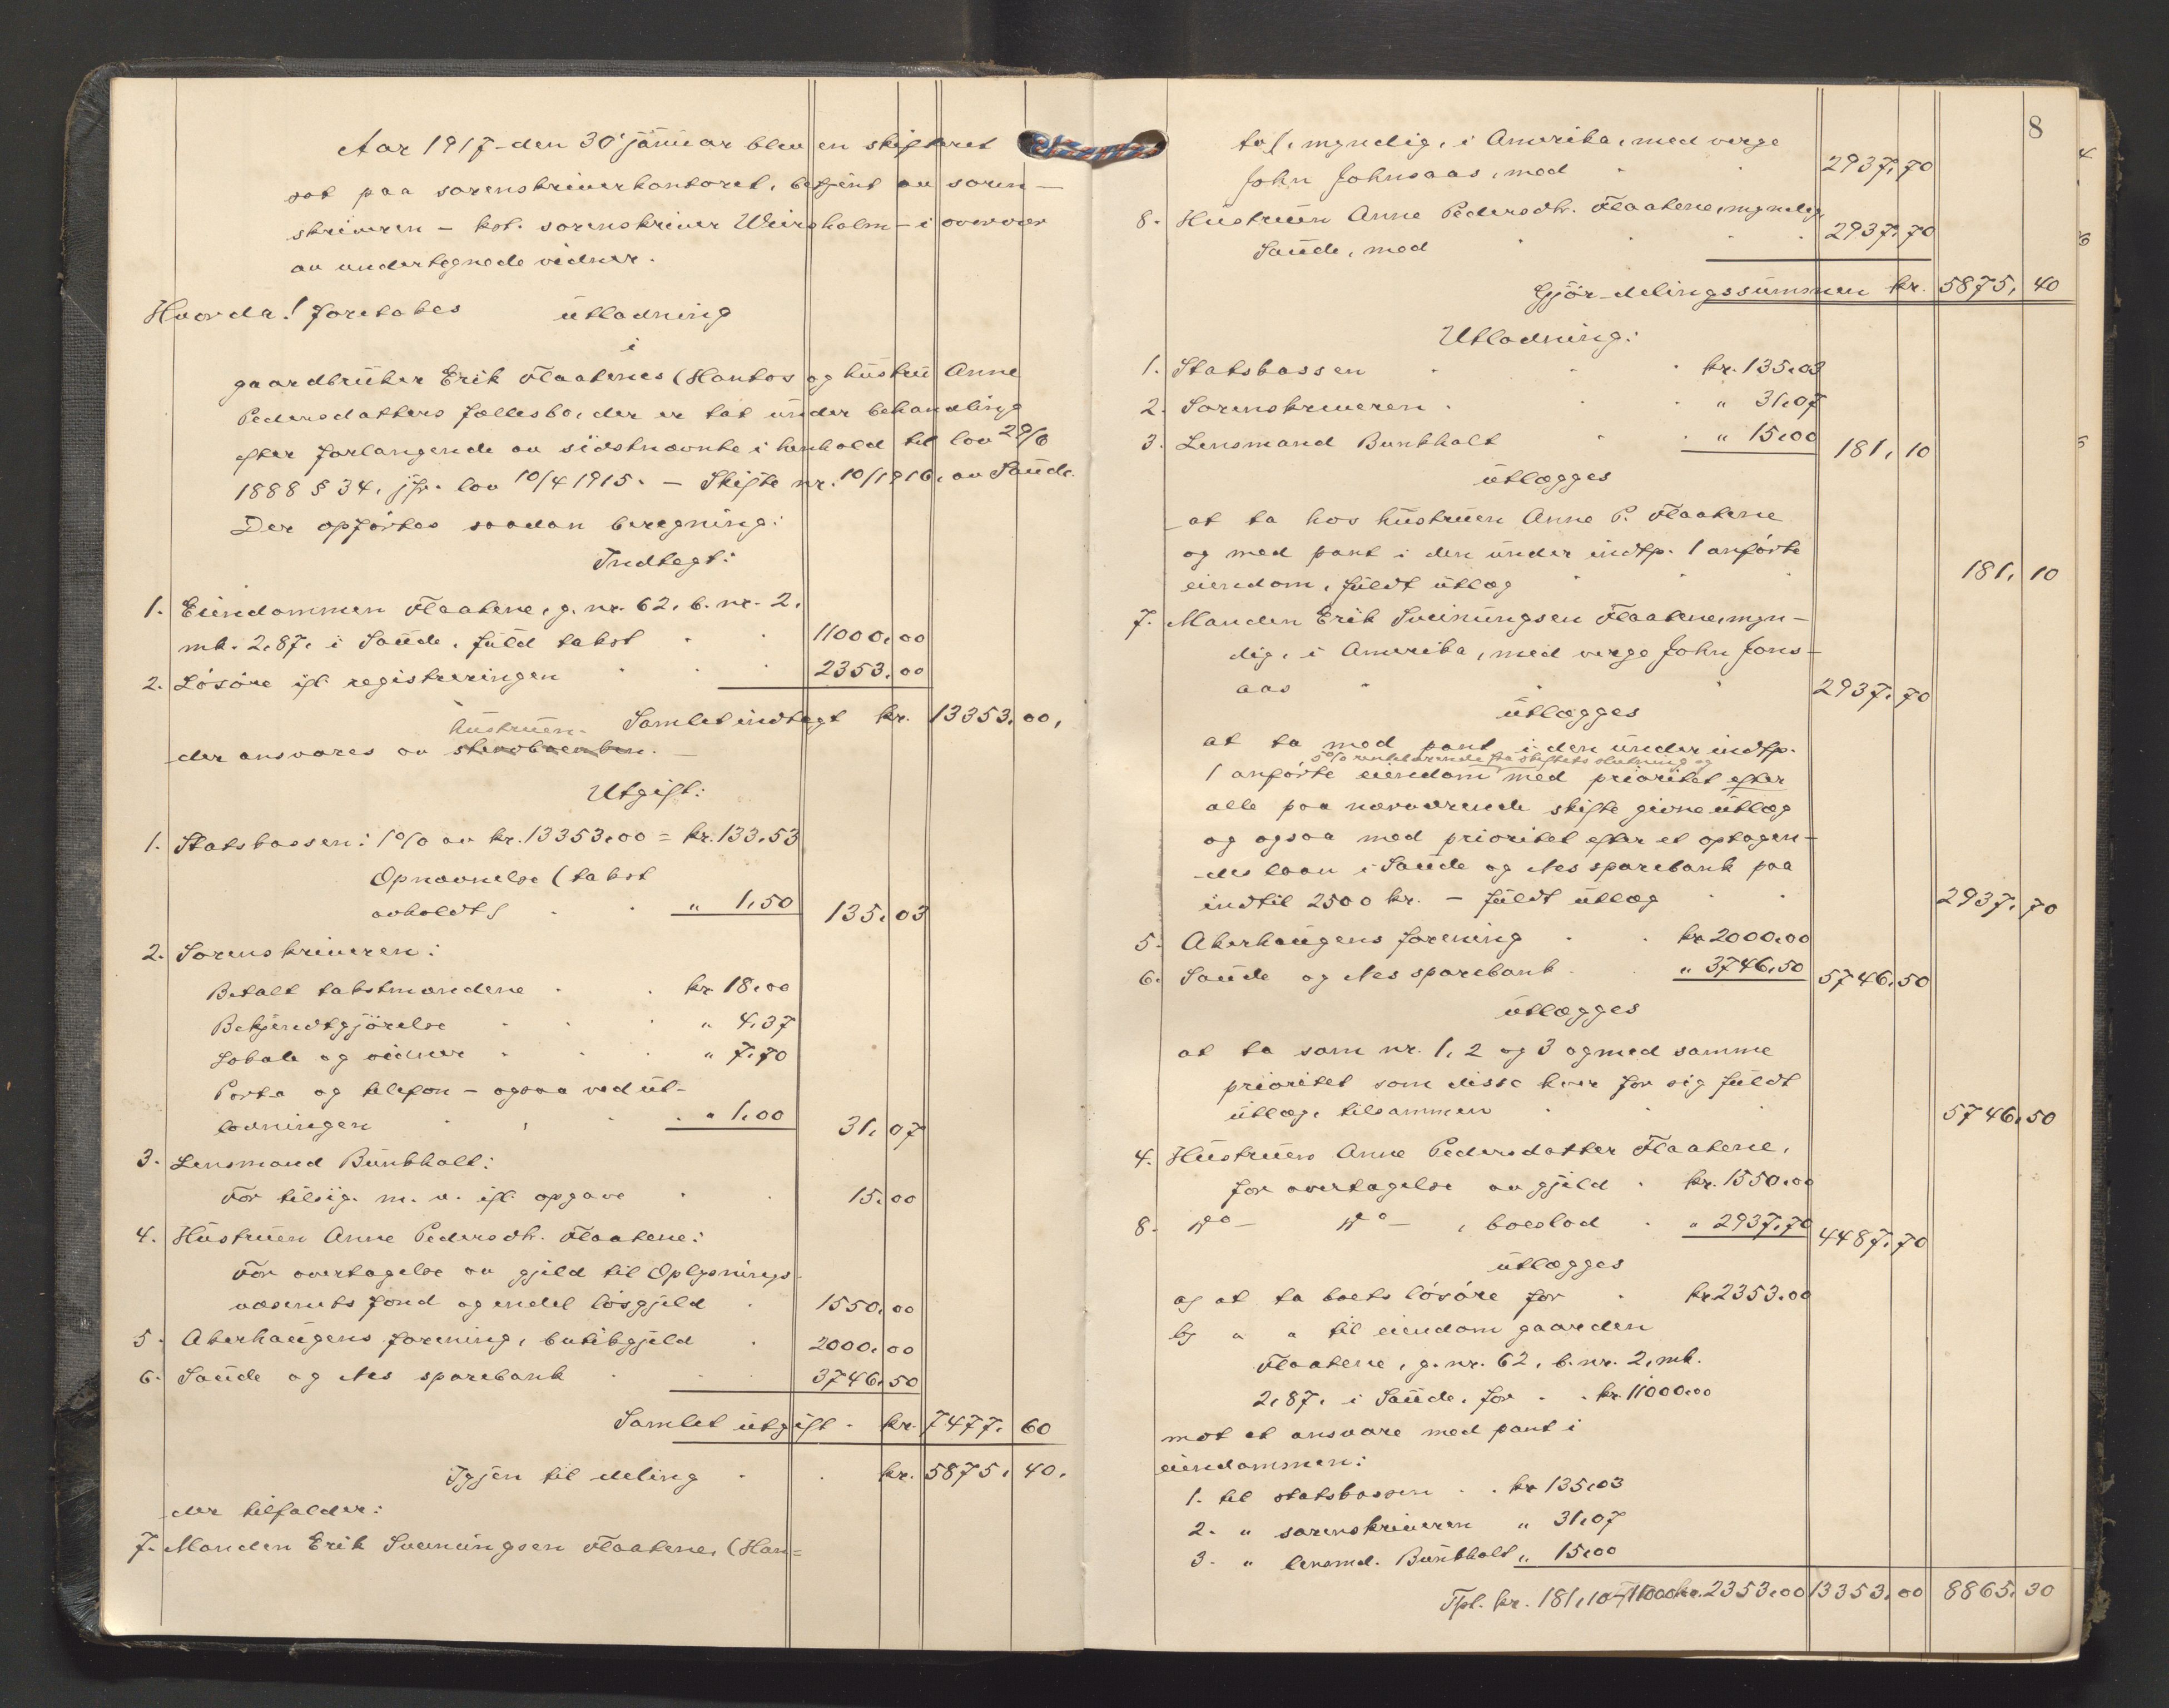 Aar 1917 den 30' januar blev en skifteret
sat paa sorenskriverkontoret, betjent av soren-
skriveren - kst. sorenskriver Weirsholm - i overvær
av undertegnede vidner.
Hvorda! foretokes utlodning
i
gaardbruker Erik Flaatenes (Hantos og hustru Anne
Pedersdatters fællesbo, der er tat under behandling
efter forlangende av sidstnævnte i henhold til lov 29/6
1888 § 34, jfr. lov 10/4 1915. - Skifte nr. 10/1916, av Saude.
Der opførtes saadan beregning:
Indtegt:
1. Eiendommen Flaatene, g. nr. 62, b. nr. 2,
mk. 2,87, i Saude, fuld takst 11000,00
2. Løsøre ifl. registreringen 2353,00
Samlet indtegt kr. 13353,00,
hustruen.
der ansvares av stervboenken. -
Utgift:
1. Statskassen: 1 % av kr. 13353,00 = kr. 133,53
Opnævnelse (takst
avholdt) " 1,50 135,03
2. Sorenskriveren:
Betalt takstmændene kr 18,00
Bekjendtgjørelse " 4,37
Lokale og vidner " 7,70
Porto og telefon - ogsaa ved ut-
lodningen " 1,00 31,07
3. Lensmand Bunkholt:
For tilsig. m. v. ifl. opgave 15,00
4. Hustruen Anne Pedersdtr. Flaatene:
For overtagelse av gjeld til Oplysnings-
væsenets fond og endel løsgjeld 1550,00
5. Akerhaugens forening, butikgjeld 2000,00
6. Saude og Nes sparebank 3746,50
Samlet utgift kr. 7477,60
Igjen til deling kr. 5875,40.
der tilfalder:
7. Manden Erik Sveinungsen Flaatene, (Han=
8
tos), myndig, i Amerika, med verge
John Johnsaas, med 2937,70
8. Hustruen Anne Pedersdtr. Flaatene, myndig
Saude, med 2937,70
Gjør delingssummen kr. 5875,40
Utlodning:
1. Statskassen kr. 135,03
2. Sorenskriveren " 31,07
3. Lensmand Bunkholt " 15,00 181,10
utlægges
at ta hos hustruen Anne P. Flaatene
og med pant i den under indtp. 1 anførte
eiendom, fuldt utlæg 181,10
7. Manden Erik Sveinungsen Flaatene, myn-
dig, i Amerika, med verge John Jons-
aas 2937,70
utlægges
at ta med pant i den under indtp.
5% rentebærende fra skiftets slutning og
1 anførte eiendom med prioritet efter
alle paa nærværende skifte givne utlæg
og ogsaa med prioritet efter et optagen-
des laan i Saude og Nes sparebank paa
indtil 2500 kr. - fuldt utlæg 2937,70
5. Akerhaugens forening kr 2000,00
6. Saude og Nes sparebank " 3746,50 5746,50
utlægges
at ta som nr. 1, 2 og 3 og med samme
prioritet som disse hver for sig fuldt
utlæg, tilsammen 5746,50
4. Hustruen Anne Pedersdatter Flaatene,
for overtagelse av gjeld kr. 1550,00
8. do - do - , boeslod " 2937,70 4487,70
utlægges
a) at ta boets løsøre for kr 2353,00
b) " " til eiendom gaarden
Flaatene, g. nr. 62, b. nr. 2, mk.
2,87, i Saude, for kr. 11000,00
mot at ansvare med pant i
eiendommen:
1. til statskassen kr 135,03
2. " sorenskriveren " 31,07
3. " lensmd. Bunkholt " 15,00
Tpl. kr. 181,10 11000 kr. 2353,00 13353,00 8865,30